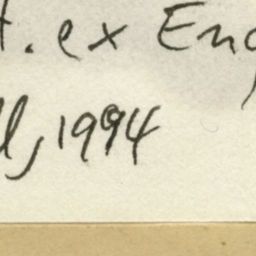 t. ex Eng
ll, 1994